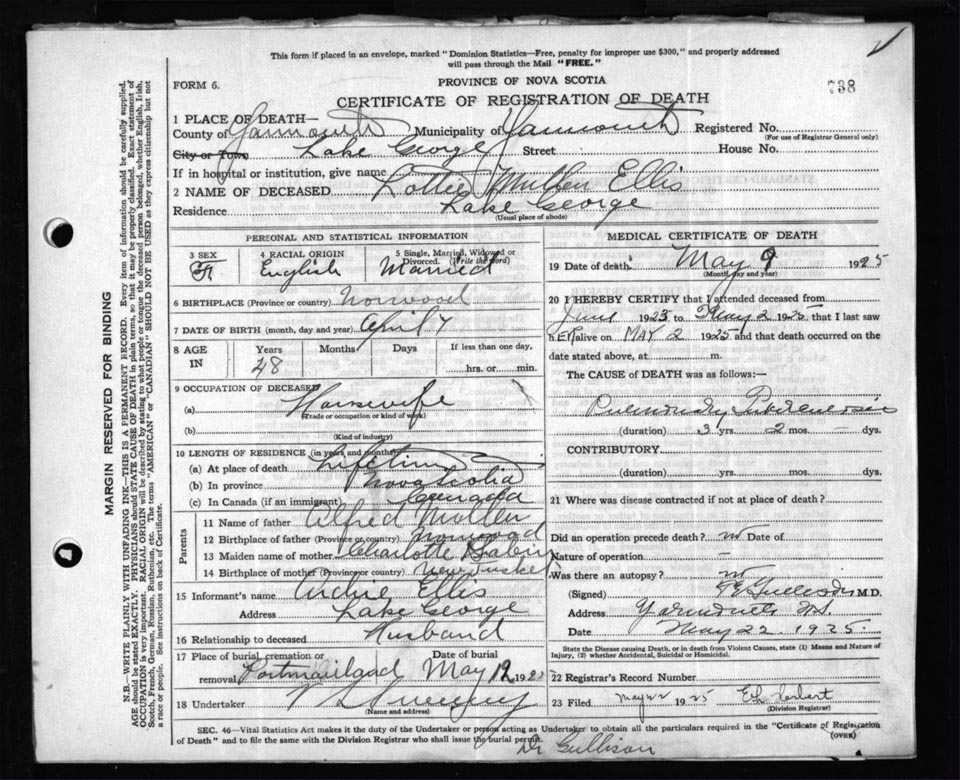 This form if placed in an envelope, marked "Dominion Statistics—Free, penalty for improper use $300," and properly addressed
will pass through the Mail "FREE."
FORM 6.
PROVINCE OF NOVA SCOTIA
738
CERTIFICATE OF REGISTRATION OF DEATH
1 PLACE OF DEATH—
County of Yarmouth Municipality of Yarmouth Registered No.
(For use of Registrar General only)
City or Town Lake George Street House No.
If in hospital or institution, give name
2 NAME OF DECEASED Lottie Mullen Ellis
Residence Lake George
(Usual place of abode)
PERSONAL AND STATISTICAL INFORMATION
3 SEX F 4 RACIAL ORIGIN English 5 Single, Married, Widowed or Divorced. (Write the word) Married
6 BIRTHPLACE (Province or country) Norwood
7 DATE OF BIRTH (month, day and year) April 7
8 AGE IN Years 48 Months Days If less than one day, hrs. or min.
9 OCCUPATION OF DECEASED
(a) Housewife
(Trade or occupation or kind of work)
(b)
(Kind of industry)
10 LENGTH OF RESIDENCE (in years and months)
(a) At place of death Lifetime
(b) In province Nova Scotia
(c) In Canada (if an immigrant) Canada
Parents
11 Name of father Alfred Mullen
12 Birthplace of father (Province or country) Norwood
13 Maiden name of mother Charlotte
14 Birthplace of mother (Province or country) New Tusket
15 Informant's name Archie Ellis
Address Lake George
16 Relationship to deceased Husband
17 Place of burial, cremation or removal Date of burial May 192
18 Undertaker Sweeney
(Name and address)
MEDICAL CERTIFICATE OF DEATH
19 Date of death May 9 1925
(Month, day and year)
20 I HEREBY CERTIFY that I attended deceased from
June 1923 to May 2 1925, that I last saw
h ER alive on MAY 2 1925, and that death occurred on the
date stated above, at m.
The CAUSE of DEATH was as follows:—
Pulmonary Tuberculosis
(duration) 3 yrs. 2 mos. – dys.
CONTRIBUTORY
(duration) yrs. mos. dys.
21 Where was disease contracted if not at place of death?
Did an operation precede death? no Date of
Nature of operation –
Was there an autopsy? no
(Signed) Gullison M.D.
Address Yarmouth N.S.
Date May 22 1925.
State the Disease causing Death, or in death from Violent Causes, state (1) Means and Nature of
Injury, (2) whether Accidental, Suicidal or Homicidal.
22 Registrar's Record Number
23 Filed May 22 1925
(Division Registrar)
SEC. 46—Vital Statistics Act makes it the duty of the Undertaker or person acting as Undertaker to obtain all the particulars required in the "Certificate of Registration
of Death" and to file the same with the Division Registrar who shall issue the burial permit. (OVER)
Dr Gullison
MARGIN RESERVED FOR BINDING
N.B.—WRITE PLAINLY WITH UNFADING INK—THIS IS A PERMANENT RECORD. Every item of information should be carefully supplied.
AGE should be stated EXACTLY. PHYSICIANS should STATE CAUSE OF DEATH in plain terms, so that it may be properly classified. Exact statement of
OCCUPATION is very important. RACIAL ORIGIN will be described by stating to what people or tongue the deceased person belonged, whether English, Irish,
Scotch, French, German, Russian, Ruthenian, etc. The terms "AMERICAN" or "CANADIAN" SHOULD NOT BE USED as they express citizenship but not
a race or people. See instructions on back of Certificate.